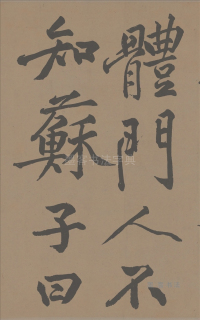 體門人不
知蘇子曰